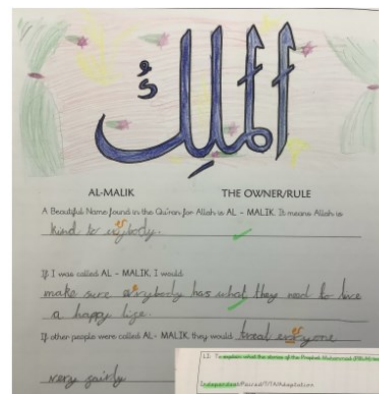 الملكُ
AL-MALIK THE OWNER/RULE
A Beautiful Name found in the Qu'ran for Allah is AL - MALIK. It means Allah is
kind to evybody.
If I was called AL - MALIK, I would
make sure evrybody has what they need to live
a happy life.
If other people were called AL- MALIK they would treat evryone
very fairly
12. To explain what the stories of the Prophet Muhammad (PBUH)
Independent/Paired/TA